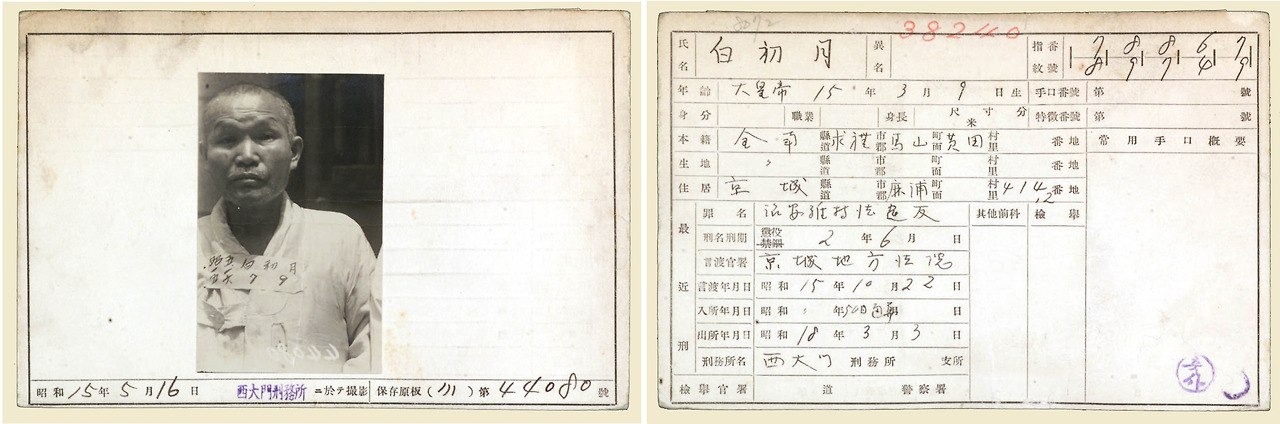 白初月
79
昭和15年5月16日 西大門刑務所 ニ於テ撮影 保存原板 第44080號
8072
38240
氏名 白初月 異名 指紋番號 7 8 8 6 7 8 9 7 4 9
年齡 大皇帝 15年3月9日生 手口番號 第 號
身分 職業 身長 尺寸分 米 特徵番號 第 號
本籍 全南 縣道 求禮 市郡 馬山 町面 黃田 村里 番地 常用手口概要
生地 〃 縣道 市郡 町面 村里 番地
住居 京城 縣道 市郡 麻浦 町面 村里 414 12 番地
最近刑
罪名 治安維持法違反 其他前科 檢擧
刑名刑期 懲役 禁錮 2年6月 日
言渡官署 京城地方法院
言渡年月日 昭和15年10月22日
入所年月日 昭和 年 50日通算
出所年月日 昭和18年3月3日
刑務所名 西大門 刑務所 支所
檢擧官署 道 警察署